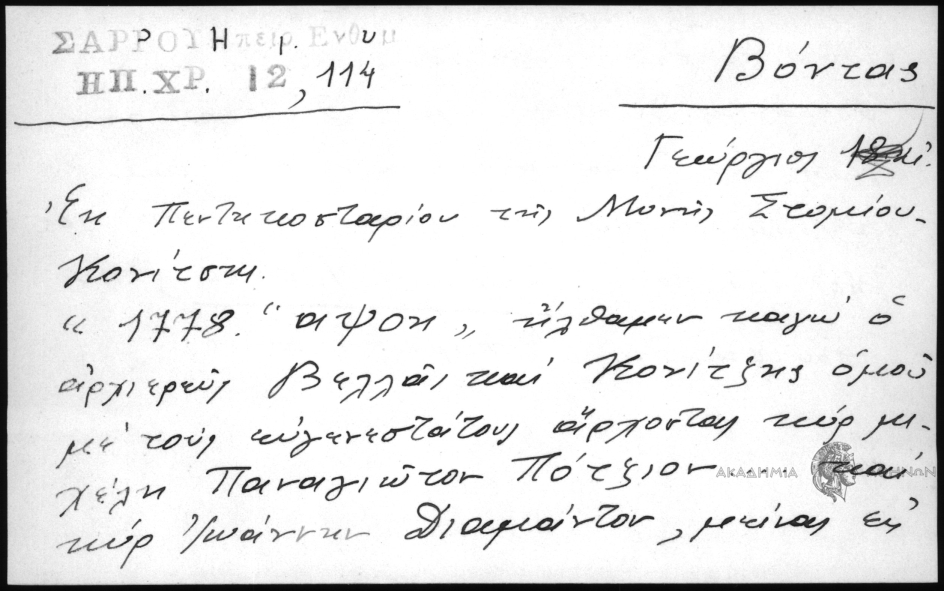 ΣΑΡΡΟΥ Ηπειρ. Ενθυμ
ΗΠ. ΧΡ. 12, 114
Βόντας
Γεώργιος
Ἐκ Πεντηκοσταρίου τῆς Μονῆς Στομίου-
Κονίτσης.
" 1778. "αψοη" ἤλθαμεν καγω ὁ
ἀρχιερεὺς Βελλᾶς καί Κονίτζης ὁμοῦ
μέ τούς εὐγενεστάτους ἄρχοντας κύρ Μι-
χέλη Παναγιῶτον Πότζιον.... καί
κύρ Ἰωάννην Διαμάντον, μείνας εἰς
ΑΚΑΔΗΜΙΑ ΑΘΗΝΩΝ